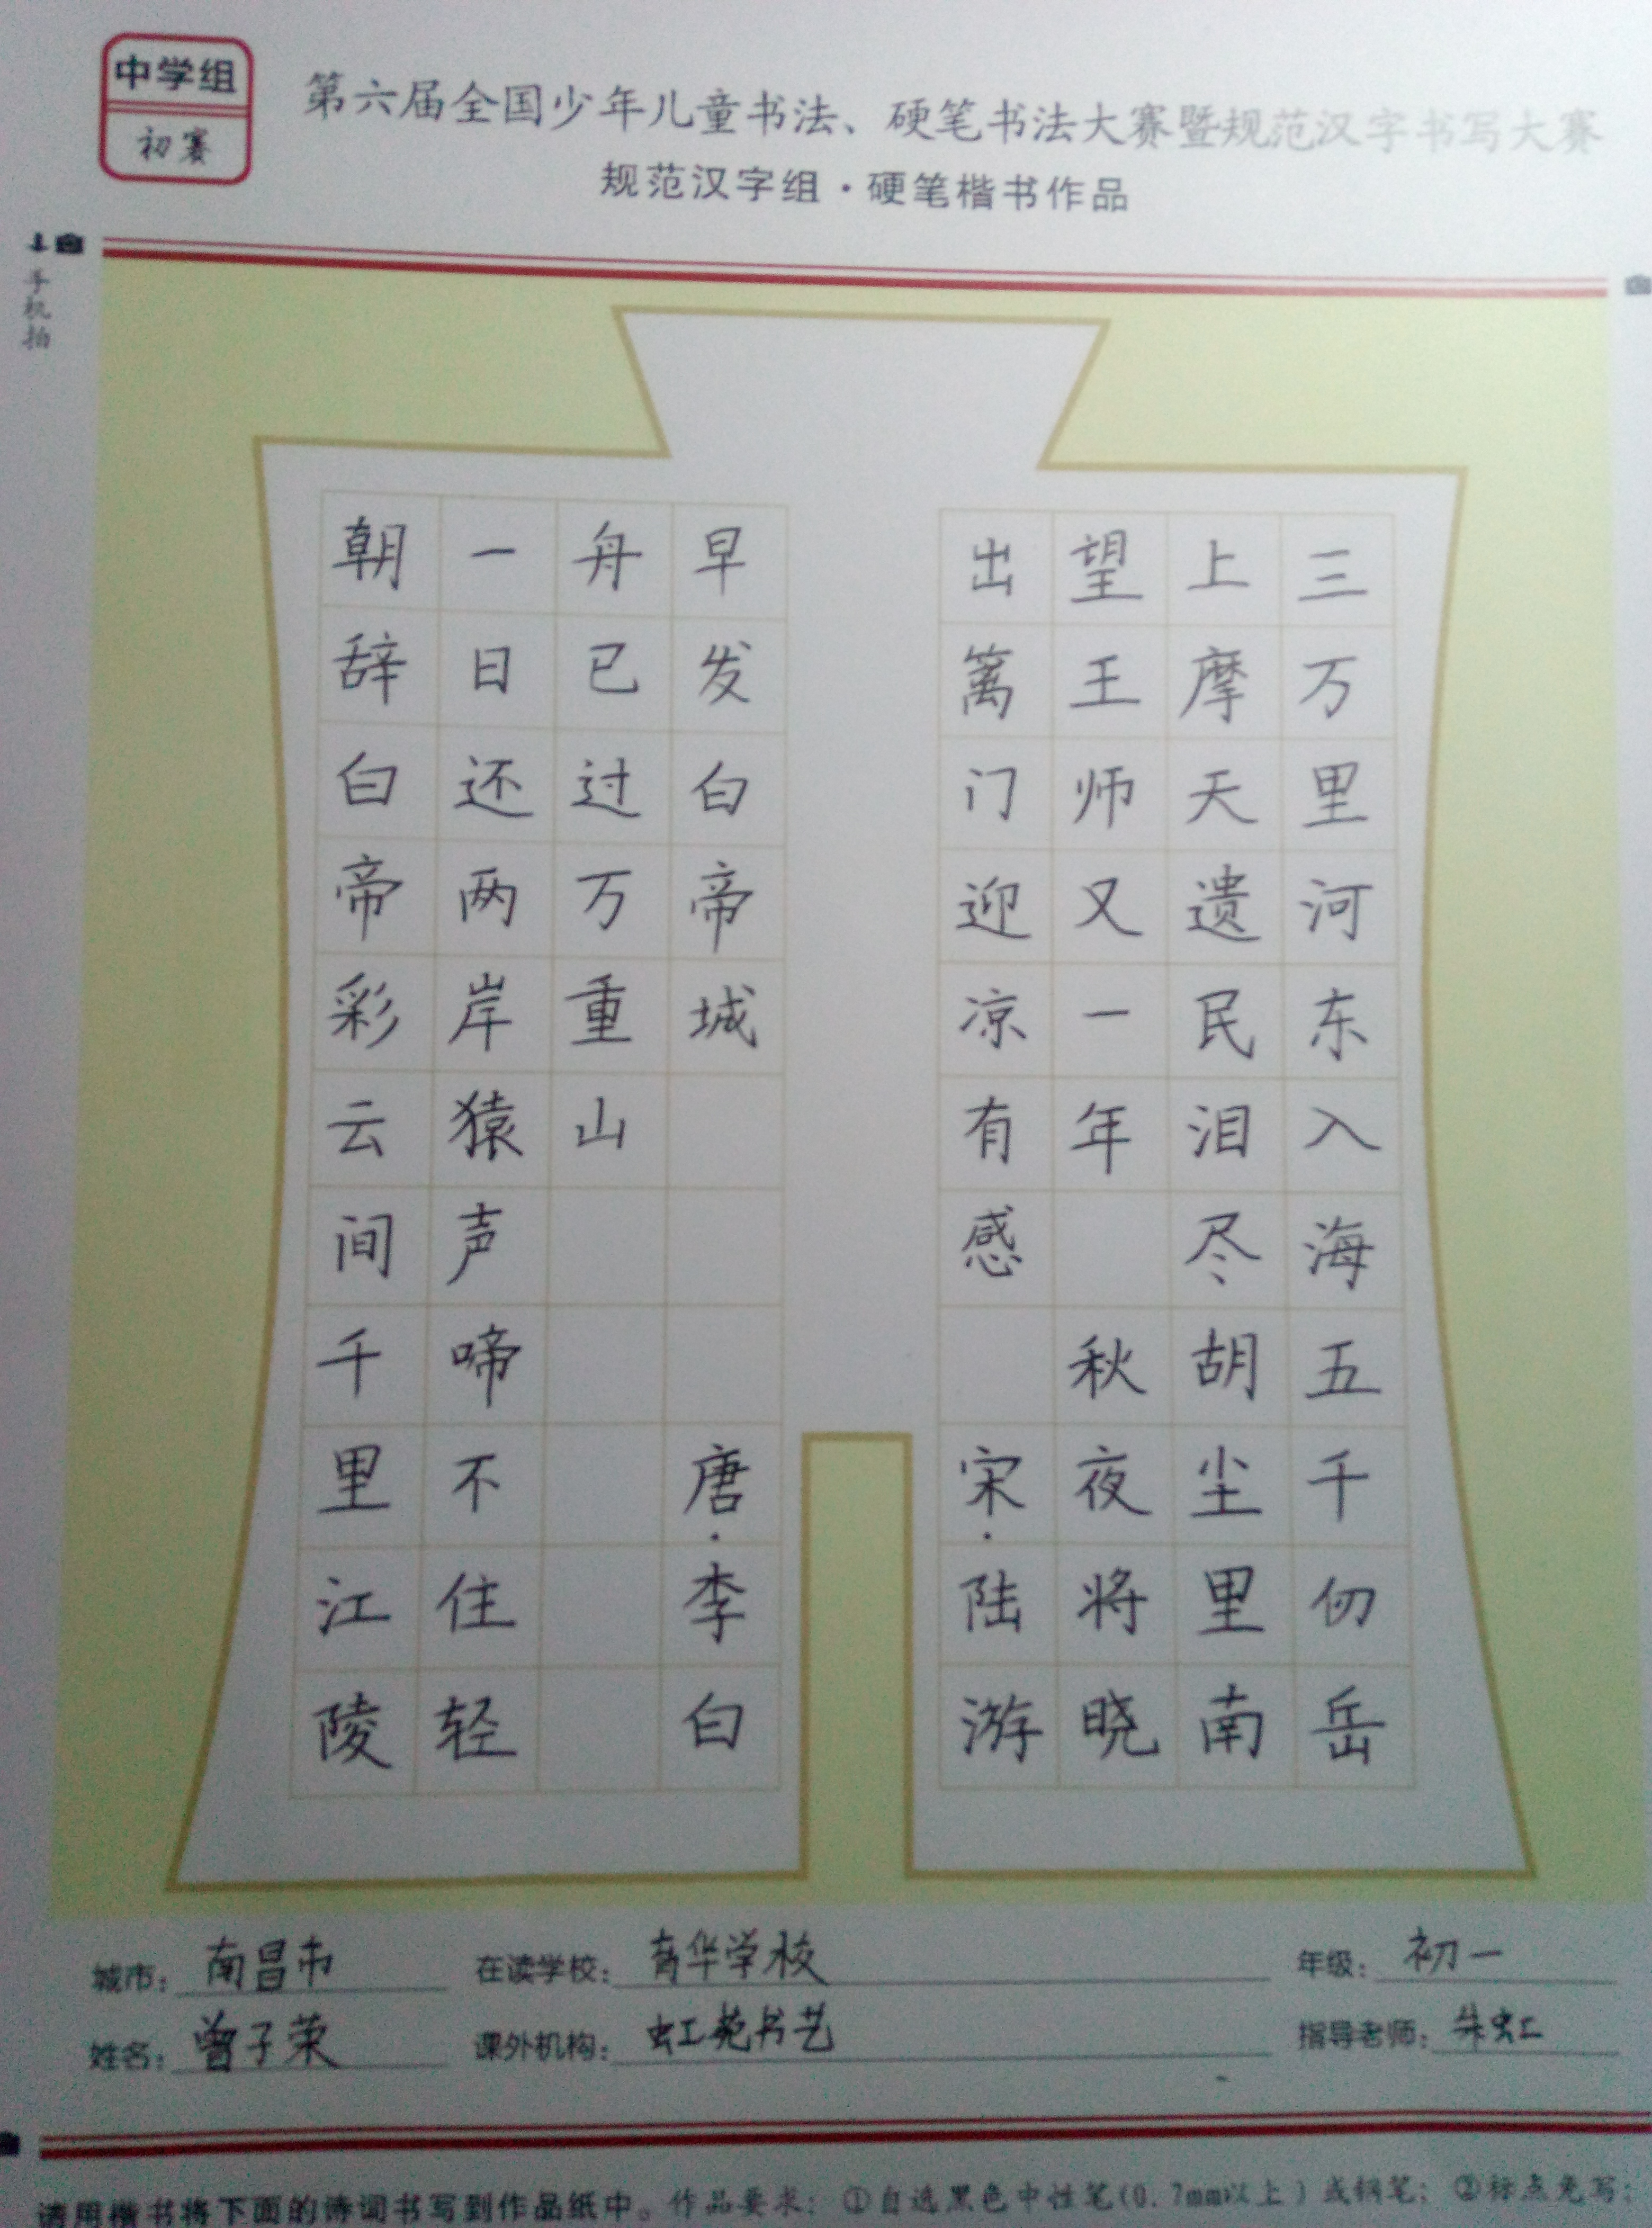 中学组
初赛
第六届全国少年儿童书法、硬笔书法大赛暨规范汉字书写大赛
规范汉字组·硬笔楷书作品
手机拍
三万里河东入海五千仞岳
上摩天遗民泪尽胡尘里南
望王师又一年 秋夜将晓
出篱门迎凉有感 宋·陆游
朝辞白帝彩云间千里江陵
一日还两岸猿声啼不住轻
舟已过万重山
早发白帝城 唐·李白
城市：南昌市 在读学校：育华学校 年级：初一
姓名：曾子荣 课外机构：虹苑书艺 指导老师：朱虹
请用楷书将下面的诗词书写到作品纸中。作品要求：①自选黑色中性笔(0.7mm以上)或钢笔；②标点免写；